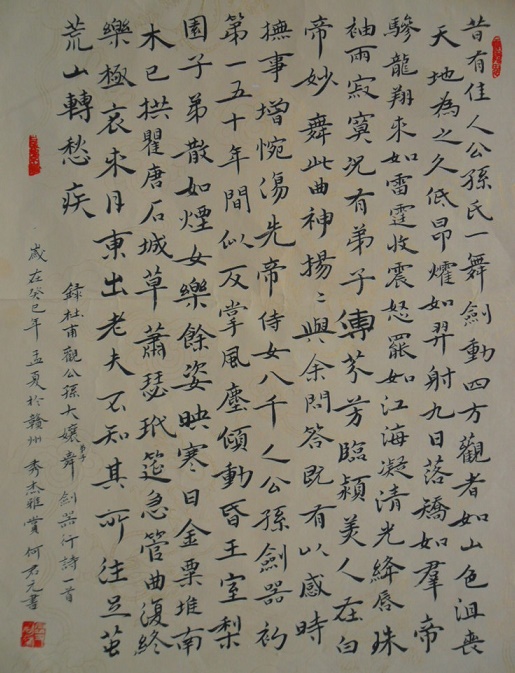 昔有佳人公孫氏一舞劍動四方觀者如山色沮喪
天地為之久低昂㸌如羿射九日落矯如羣帝
驂龍翔来如雷霆收震怒罷如江海凝清光絳唇珠
袖兩寂寞況有弟子傳芬芳臨潁美人在白
帝妙舞此曲神揚〻與余問答既有以感時
撫事增惋傷先帝侍女八千人公孫劍器初
第一五十年間似反掌風塵傾動昏王室梨
園子弟散如煙女樂餘姿映寒日金粟堆南
木已拱瞿唐石城草蕭瑟玳筵急管曲復終
樂極哀来月東出老夫不知其所往足茧
荒山轉愁疾
録杜甫觀公孫大孃弟子舞劍器行詩一首
歲在癸巳年孟夏於贛州 秀杰雅賞 何君元書